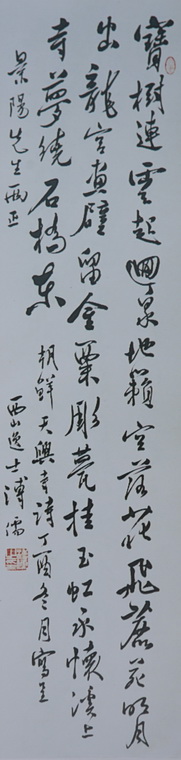 寶樹連雲起迴泉地籟空落花飛鹿苑明月
出龍宮畫壁留金粟彫甍挂玉虹永懷溪上
寺夢繞石橋東
朝鮮天興寺詩丁酉冬月寫呈
景陽先生兩正
西山逸士溥儒